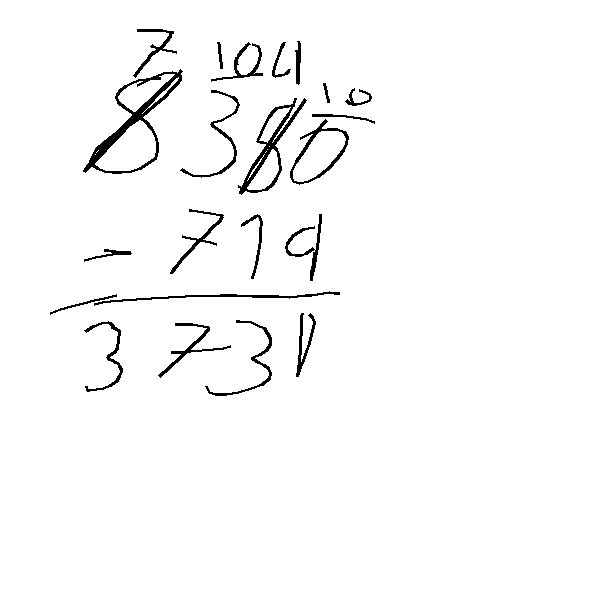 7 10 4 10
8380
- 719
3731